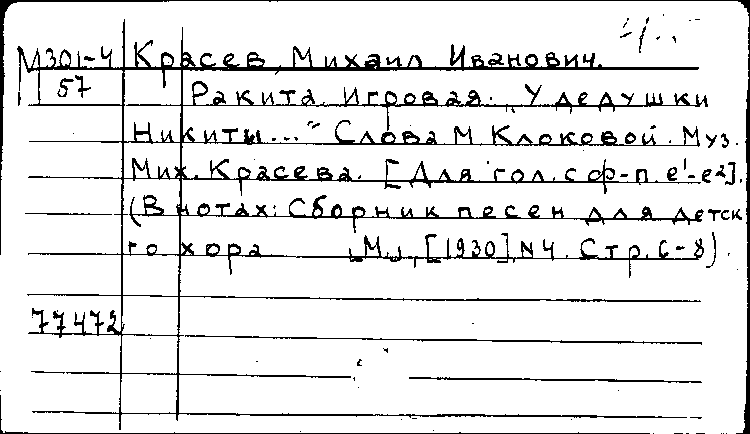 М301-4 Красев, Михаил Иванович.
57 Ракита. Игровая. „У дедушки
Никиты..." Слова М. Клоковой. Муз.
Мих. Красева. [Для гол. с ф-п. e¹-e²].
(В нотах: Сборник песен для детск
го хора М., [1930], N 4. Стр. 6-8).
77472